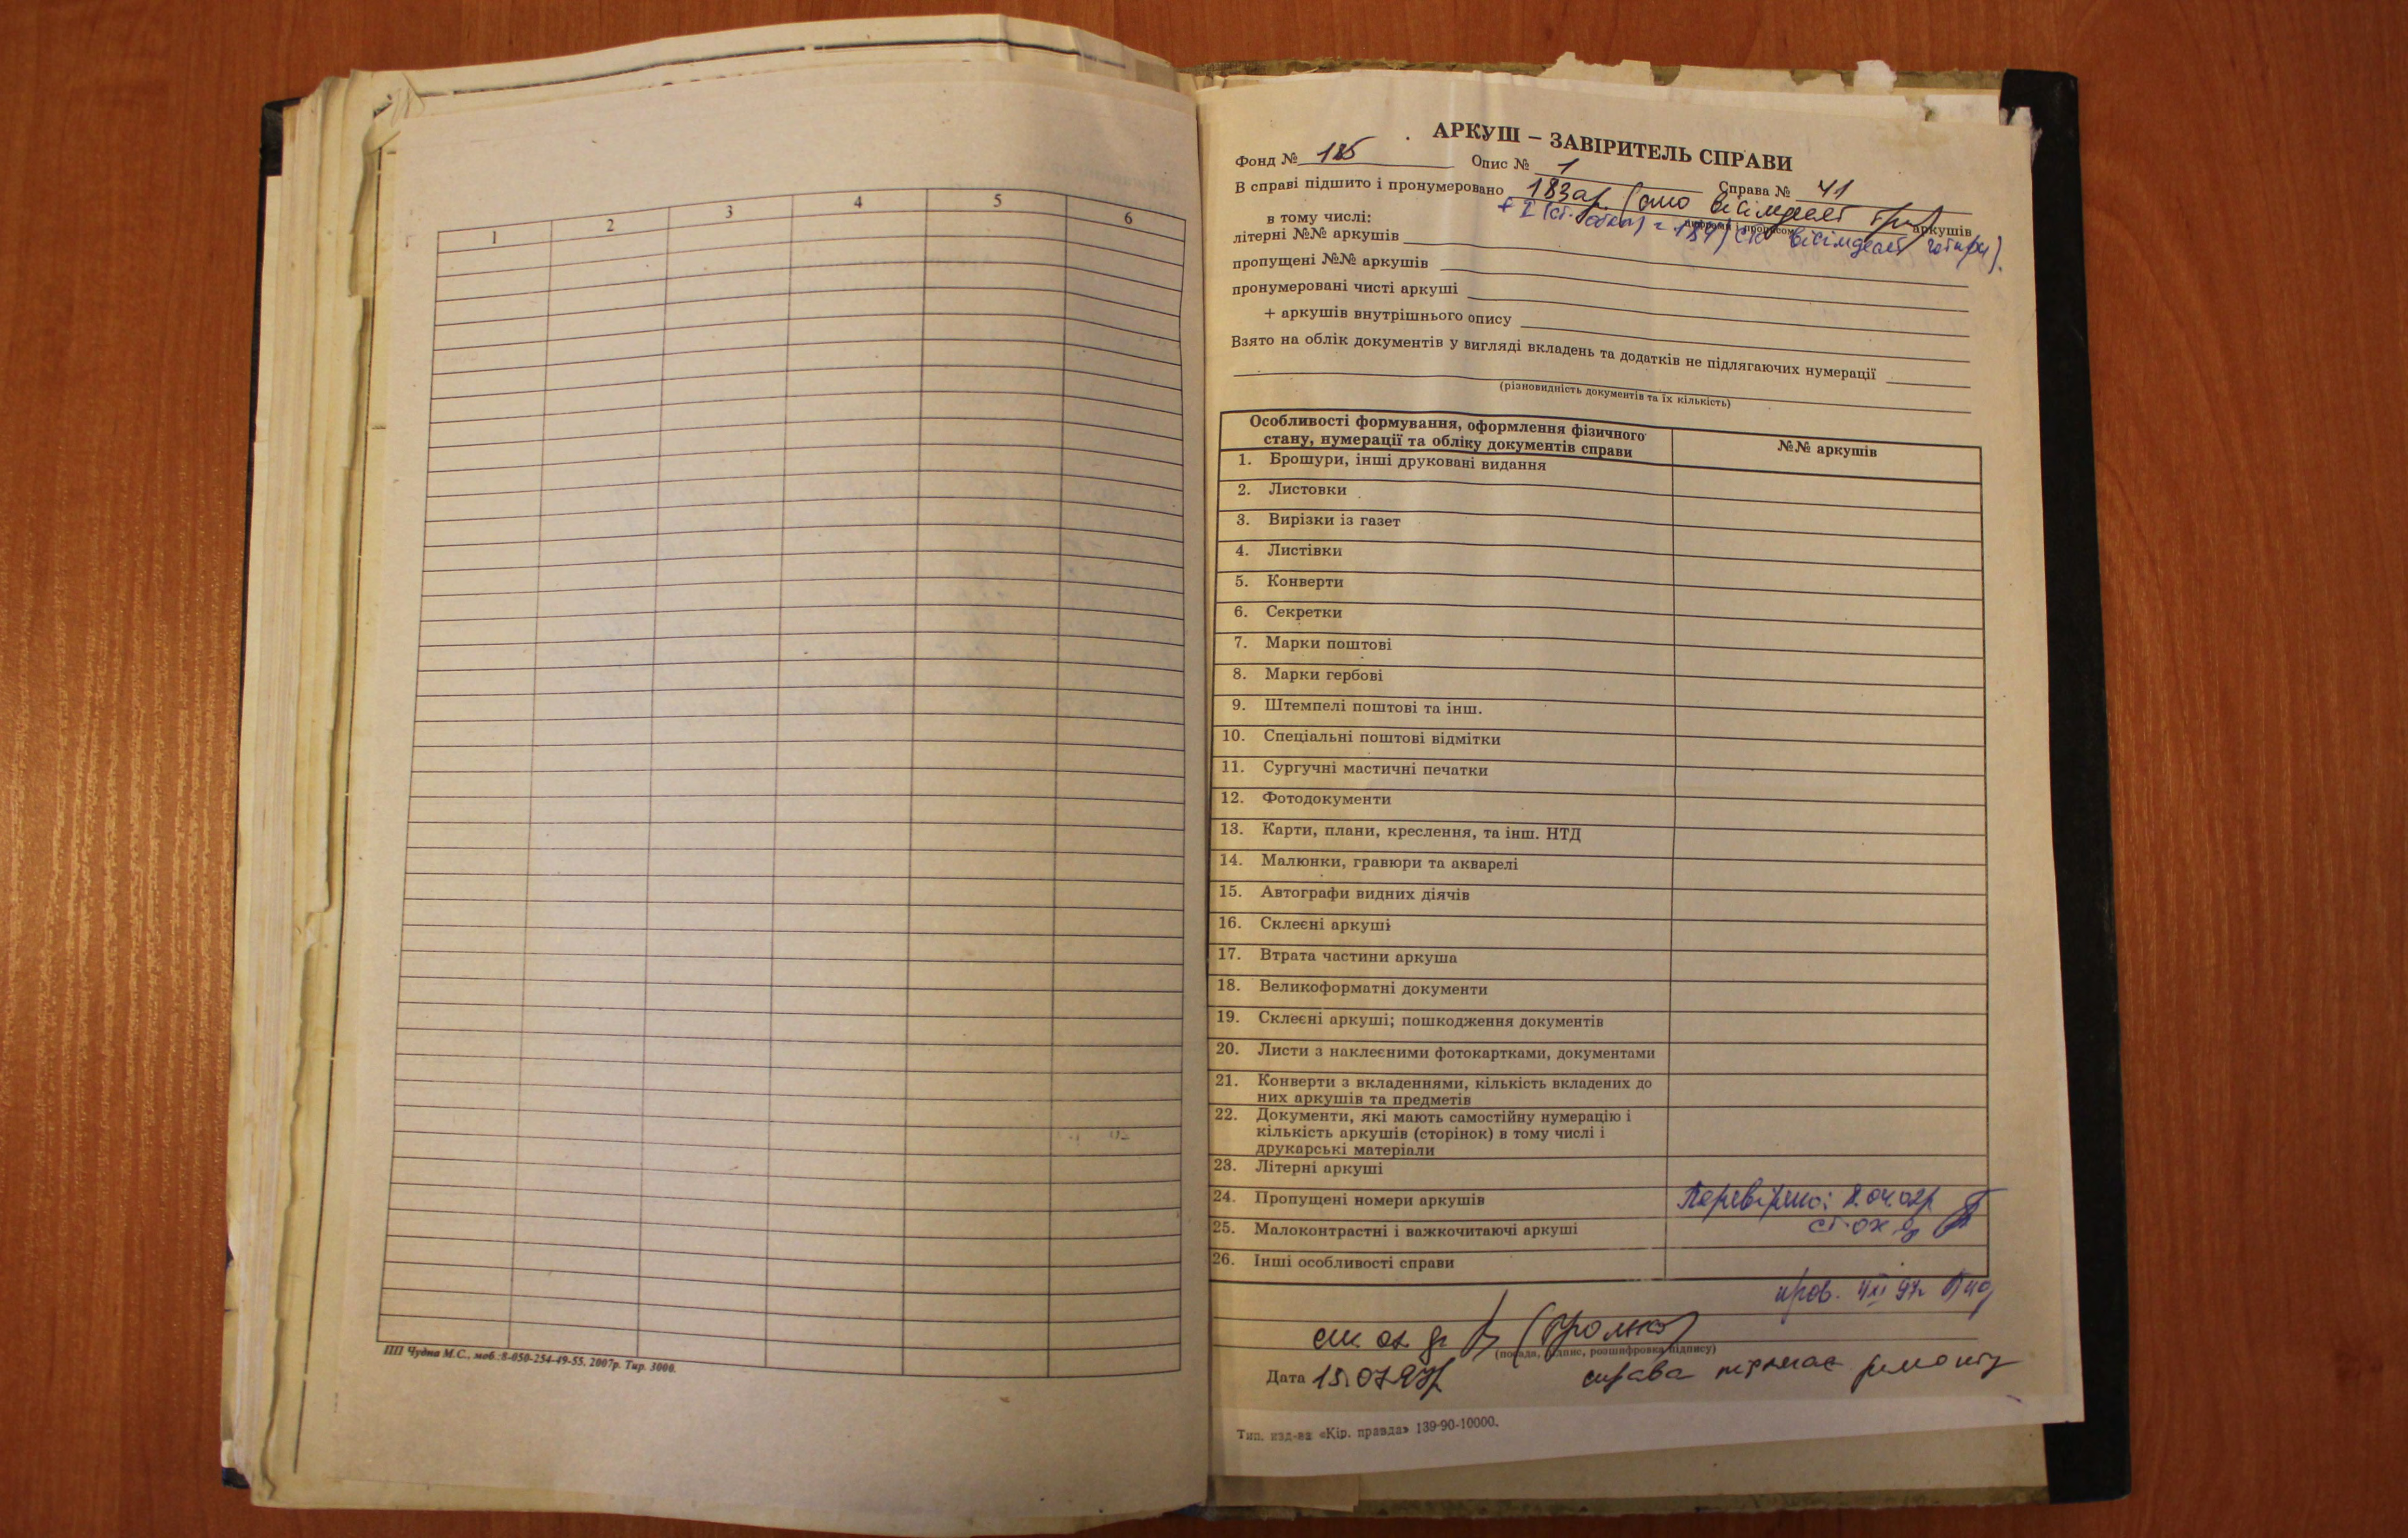 1 2 3 4 5 6
ПП Чудна М.С., моб.:8-050-254-49-55, 2007р. Тир. 3000.
АРКУШ – ЗАВІРИТЕЛЬ СПРАВИ
Фонд № 185 Опис № 1 Справа № 41
В справі підшито і пронумеровано 183 ар. (сто вісімдесят три) аркушів
цифрами і прописом
в тому числі:
літерні №№ аркушів
пропущені №№ аркушів
пронумеровані чисті аркуші
+ аркушів внутрішнього опису
Взято на облік документів у вигляді вкладень та додатків не підлягаючих нумерації
(різновидність документів та їх кількість)
Особливості формування, оформлення фізичного
стану, нумерації та обліку документів справи
№№ аркушів
1. Брошури, інші друковані видання
2. Листовки
3. Вирізки із газет
4. Листівки
5. Конверти
6. Секретки
7. Марки поштові
8. Марки гербові
9. Штемпелі поштові та інш.
10. Спеціальні поштові відмітки
11. Сургучні мастичні печатки
12. Фотодокументи
13. Карти, плани, креслення, та інш. НТД
14. Малюнки, гравюри та акварелі
15. Автографи видних діячів
16. Склеєні аркуші
17. Втрата частини аркуша
18. Великоформатні документи
19. Склеєні аркуші; пошкодження документів
20. Листи з наклеєними фотокартками, документами
21. Конверти з вкладеннями, кількість вкладених до
них аркушів та предметів
22. Документи, які мають самостійну нумерацію і
кількість аркушів (сторінок) в тому числі і
друкарські матеріали
23. Літерні аркуші
24. Пропущені номери аркушів Перевірено:
25. Малоконтрастні і важкочитаючі аркуші
26. Інші особливості справи
(посада, підпис, розшифровка підпису)
Дата 15.07.97р. справа підлягає ремонту
Тип. изд-ва «Кір. правда» 139-90-10000.